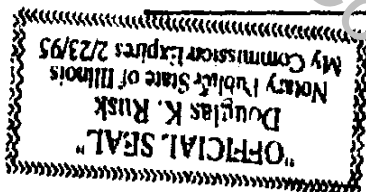 "OFFICIAL SEAL"
Douglas K. Rusk
Notary Public State of Illinois
My Commission Expires 2/23/95